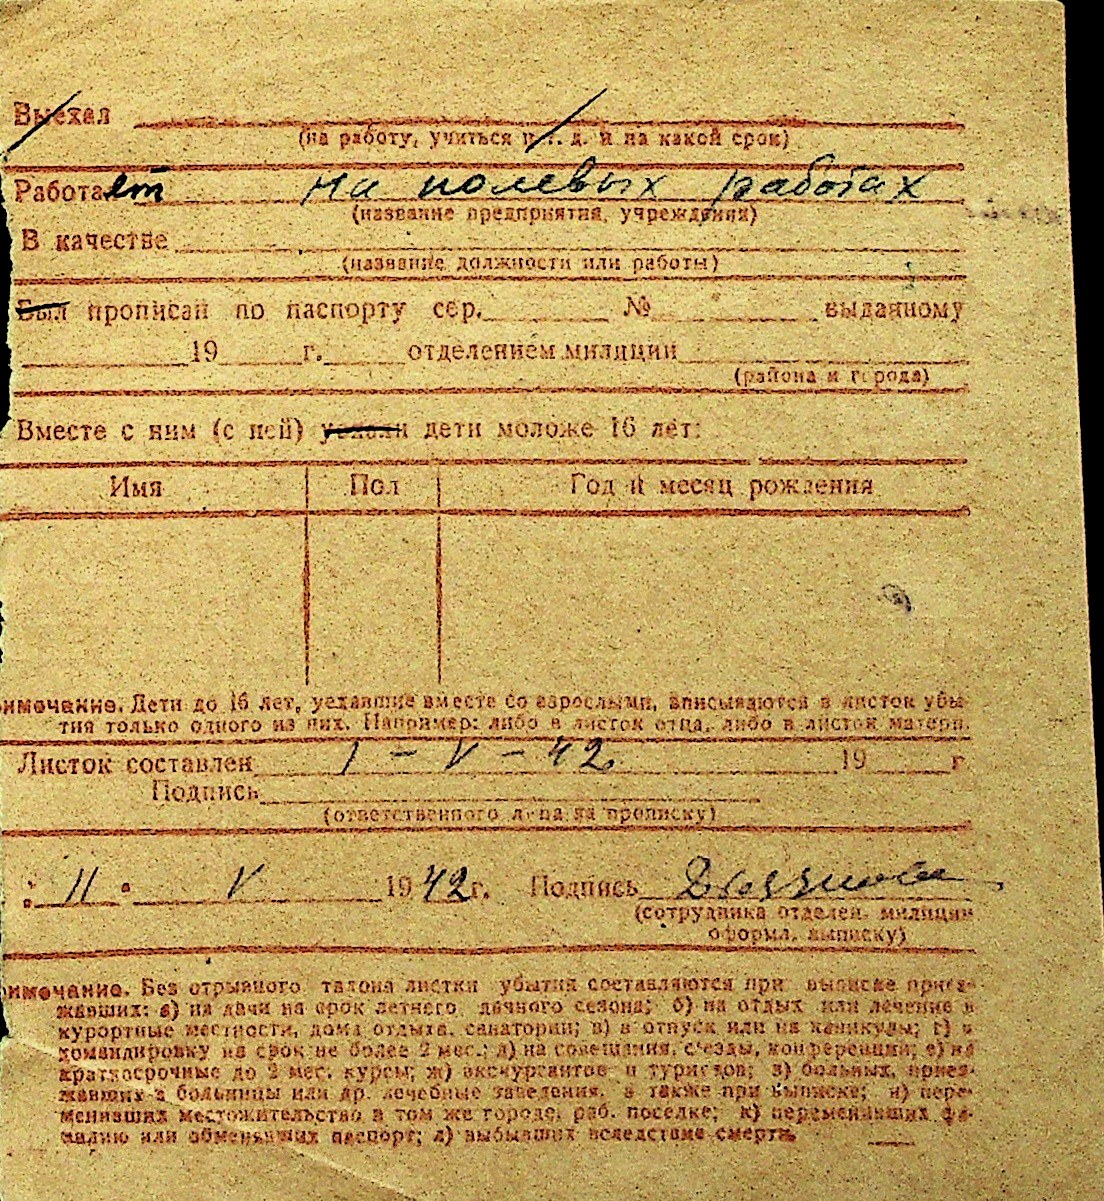 Выехал
(на работу, учиться и т. д. и на какой срок)
Работает на полевых работах
(название предприятия, учреждения)
В качестве
(название должности или работы)
Был прописан по паспорту сер. № выданному
19 г. отделением милиции
(района и города)
Вместе с ним (с ней) уехали дети моложе 16 лет:
Имя Пол Год и месяц рождения
имечание. Дети до 16 лет, уехавшие вместе со взрослыми, вписываются в листок убы-
тия только одного из них. Например: либо в листок отца, либо в листок матери.
Листок составлен 1 – V – 42 19 г
Подпись
(ответственного лица за прописку)
" 11 " V 1942 г. Подпись
(сотрудника отделен. милиции
оформл. выписку)
имечание. Без отрывного талона листки убытия составляются при выписке приез-
жавших: а) на дачи на срок летнего дачного сезона; б) на отдых или лечение в
курортные местности, дома отдыха, санатории; в) в отпуск или на каникулы; г) в
командировку на срок не более 2 мес.; д) на совещания, съезды, конференции; е) на
краткосрочные до 2 мес. курсы; ж) экскурсантов и туристов; з) больных, приез-
жавших в больницы или др. лечебные заведения, а также при выписке; и) пере-
менивших местожительство в том же городе, раб. поселке; к) переменивших фа-
милию или обменявших паспорт; л) выбывших вследствие смерти.